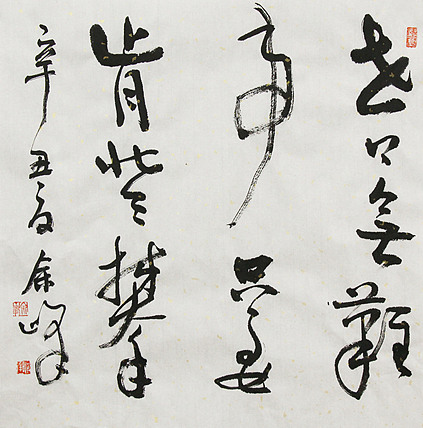 世上無難
事只要
肯登攀
辛丑夏余峰